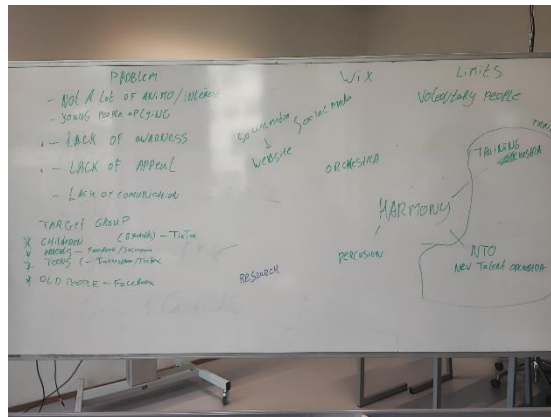 PROBLEM
- NOT A LOT OF ANIMO/INTEREST
- YOUNG PEOPLE APLYING
- LACK OF AWARNESS
- LACK OF APPEAL
- LACK OF COMUNICATION
TARGET GROUP
* CHILDEREN - TikTok
* - Facebook/Instagram
* TEENS - Instagram/TikTok
* OLD PEOPLE - Facebook
WiX
Social media
WEBSITE
ORCHESTRA
RESEARCH
LIMITS
Voluntary PEOPLE
TRAINING
ORCHESTRA
HARMONY
PERCUSION
NTO
New Talent ORCHESTRA